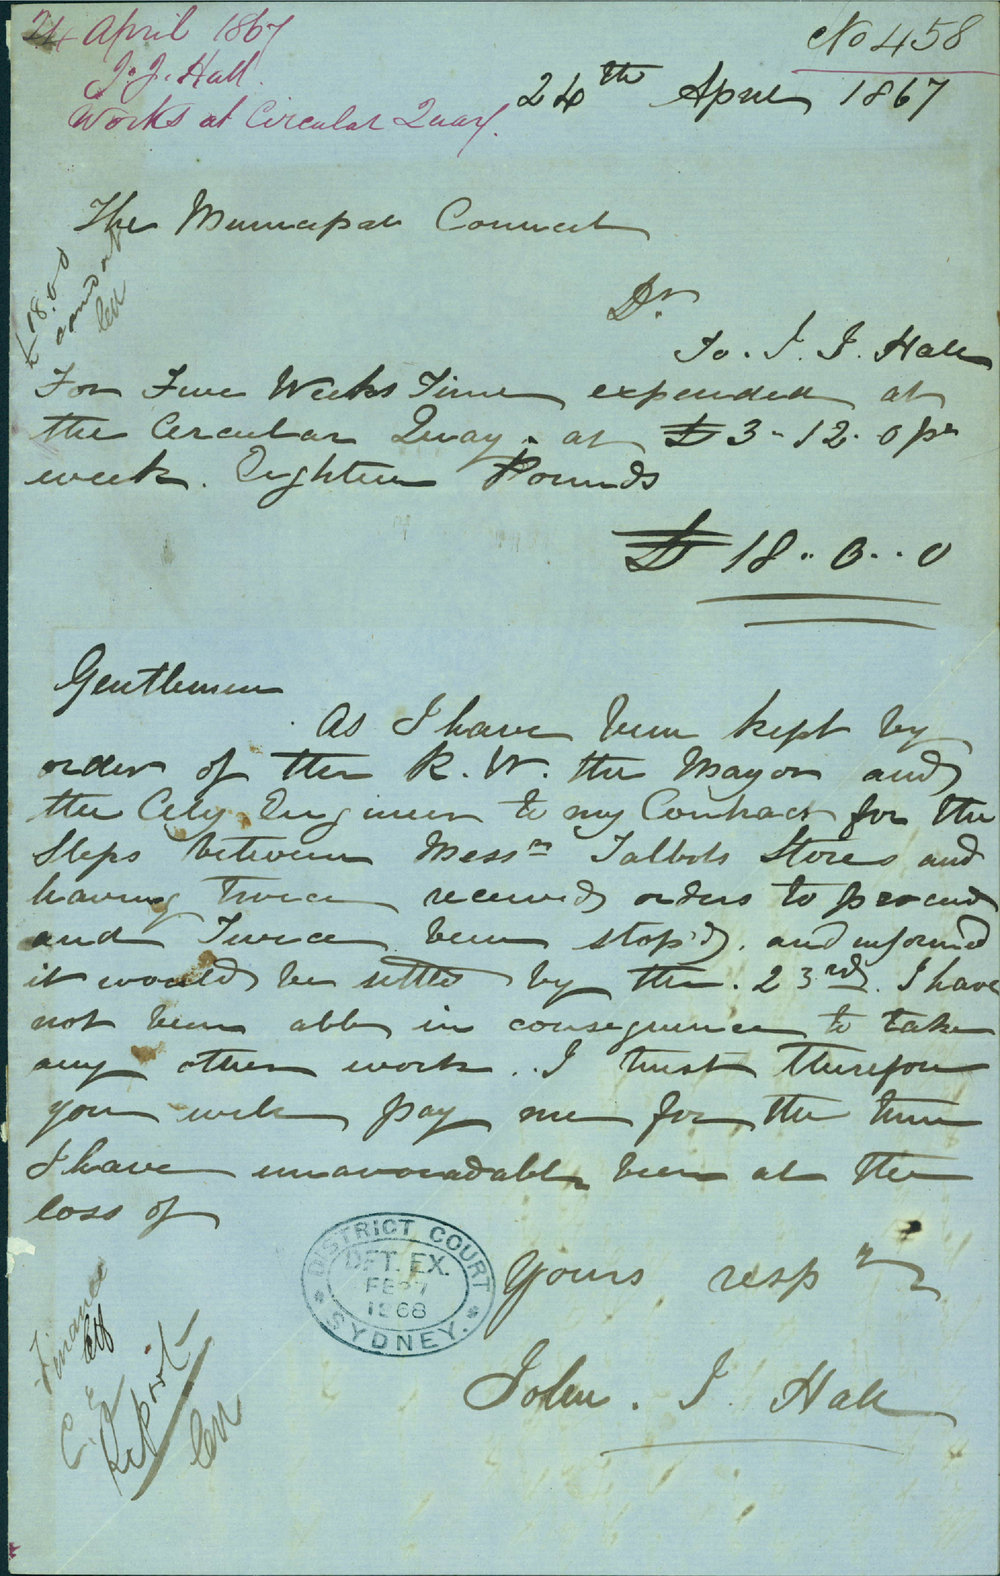 24 April 1867
J. J. Hall.
Works at Circular Quay.
No 458
24th April 1867
The Municipal Council
£18.0.0
Dr.
To. J. J. Hall
For Five Weeks Time expended at
the Circular Quay. at £3-12-0 pr
week. Eighteen Pounds
£18..0..0
Gentlemen
As I have been kept by
order of the R. W. the Mayor and
the City Engineer to my Contract for the
Steps between Messrs Talbots Stores and
having Twice received orders to proceed
and Twice been stop'd. and informed
it would be settled by the. 23rd. I have
not been able in consequence to take
any other work.. I trust therefore
you will pay me for the time
I have unavoidable been at the
loss of
Yours resp
John. J. Hall
DISTRICT COURT
DFT. EX.
FEB 7
1868
SYDNEY.
Finance
C. E.
Report